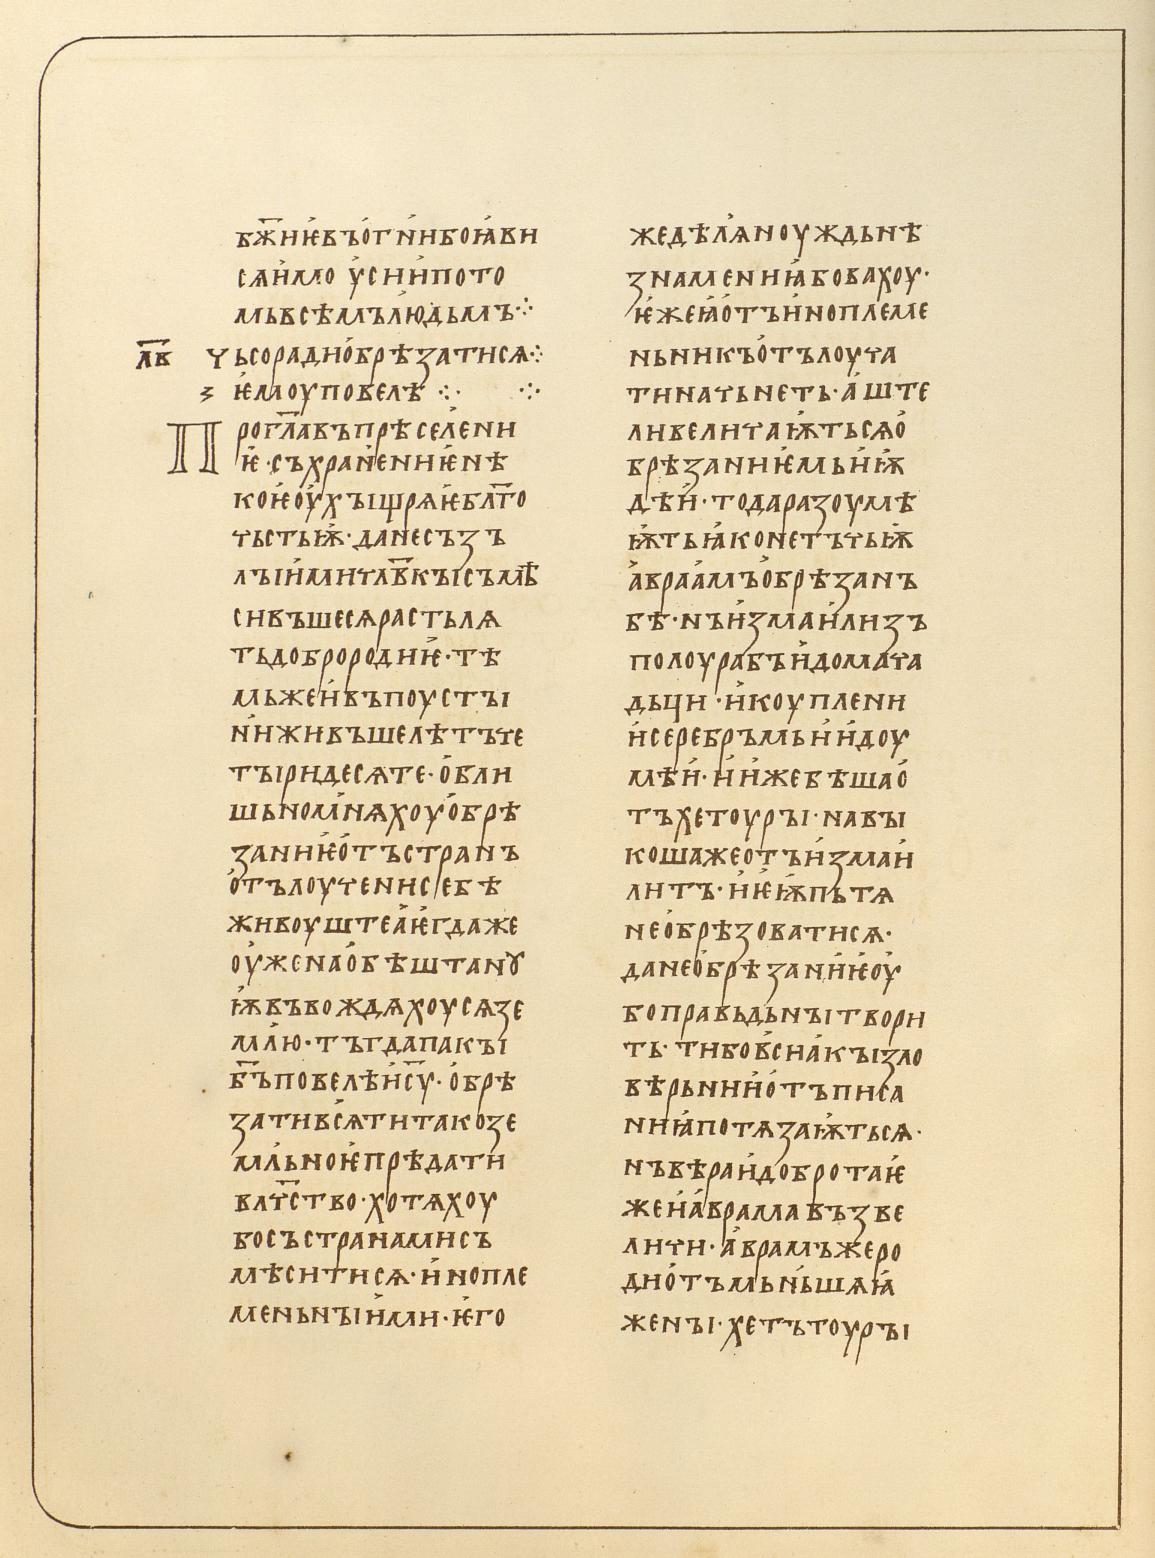 бж҃иѥвъогн҄ибоꙗви
сѧимо ѹсниипото
мьвсѣмълюдьмъ⁘
л҃в чьсорадиобрѣзатисѧ⁘
ꙁ ѥмоуповелѣ ⁘ ⁘
Прогл҃авъпрѣселени
ѥ·съхранениѥнѣ
коѥоухъıщрѧѥбл҃го
чьстьѭ·данесъꙁъ
лъıимичл҃вкъıсъмѣ
сивъшесѧрастьлѧ
тьдоброродиѥ·тѣ
мьжеивъпоустъı
нииживъшелѣтъче
тъıридесѧте·обли
шьномнѧхоуобрѣ
ꙁаниѥотъстранъ
отълоученисебѣ
живоуштеаѥгдаже
оуженаобѣштанꙋ
ѭвъвождѧхоусѧꙁе
млю·тъгдапакъı
б҃ъповелѣис҃у·обрѣ
ꙁативсѧтитакоꙁе
мльноѥпрѣдати
вл҃чство·хотѧхоу
босъстранамисъ
мѣситисѧ·инопле
меньнъıими·ѥго
жедѣлѧноуждьнѣ
ꙁнамениꙗбовахоу·
ѥжеꙗотъиноплеме
ньникъотълоуча
тиначьнеть·аште
ливеличаѭтьсѧо
брѣꙁаниѥмьиѭ
дѣи·тодараꙁоумѣ
ѭтьꙗконетъчьѭ
авраамъобрѣꙁанъ
бѣ·нъиꙁмаилиꙁъ
полоурабъидомача
дьци·икоуплени
исеребръмьиидоу
мѣи·иижебѣшао
тъхетоуръı·навъı
кошажеотъиꙁмаи
литъ·иѥѭпьтѧ
необрѣꙁоватисѧ·
данеобрѣꙁаниѥоу
боправьдьнъıтвори
ть·тибовсиакъıꙁло
вѣрьнииотъписа
ниꙗпотѧꙁаѭтьсѧ·
нъвѣраидобротаѥ
жеиаврамавъꙁве
личи·аврамъжеро
диотъмьньшѧꙗ
женъı·хетътоуръı